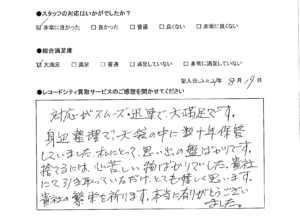 ●スタッフの対応はいかがでしたか?
☑非常に良かった □良かった □普通 □良くない □非常に良くない
●総合満足度
☑大満足 □満足 □普通 □満足していない □非常に満足していない
記入日2021年8月19日
●レコードシティ買取サービスのご感想を聞かせてください
対応がスムーズ、迅速で、大満足です。
身辺整理で、大袋の中に数十年保管
していました。私にとって、思い出の盤ばかりです。
捨てるには、心苦しい物ばかりでした。貴社
にて引き取っていただけ、とても嬉しく思います。
貴社の繁栄を祈ります。本当に有りがとうござい
ました。